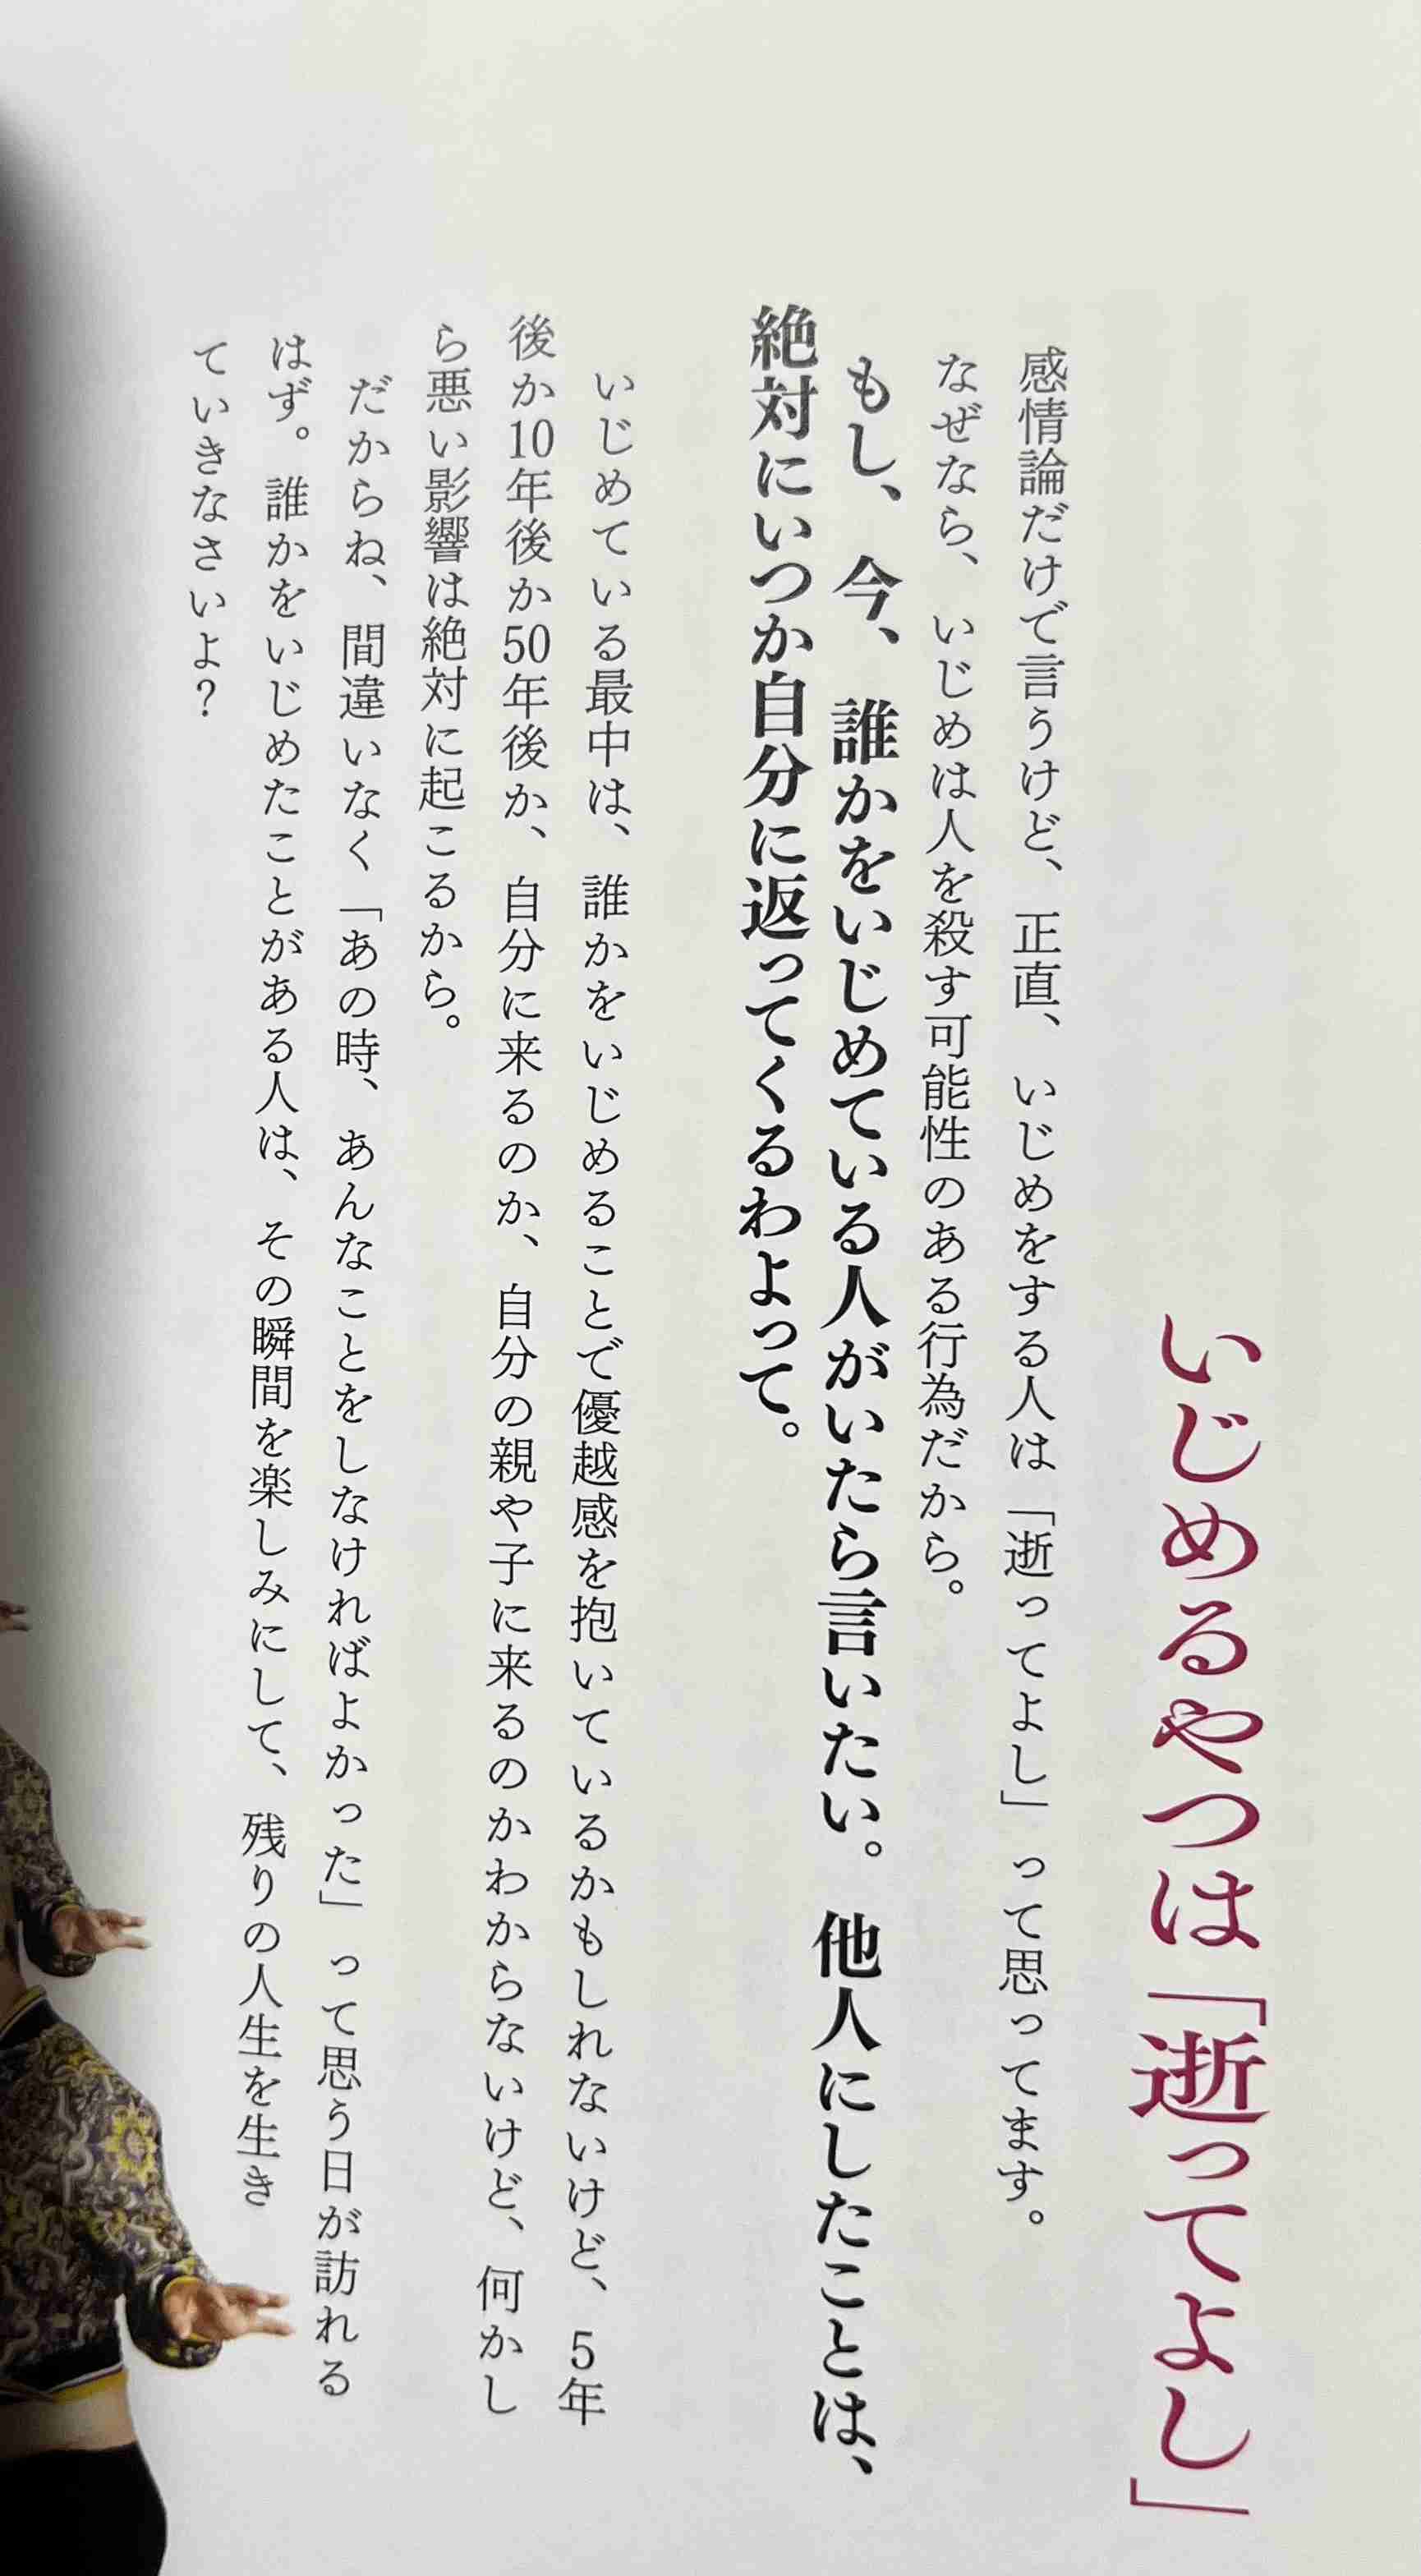 いじめるやつは「逝ってよし」
感情論だけで言うけど、正直、いじめをする人は「逝ってよし」って思ってます。
なぜなら、いじめは人を殺す可能性のある行為だから。
もし、今、誰かをいじめている人がいたら言いたい。他人にしたことは、
絶対にいつか自分に返ってくるわよって。
いじめている最中は、誰かをいじめることで優越感を抱いているかもしれないけど、5年
後か10年後か50年後か、自分に来るのか、自分の親や子に来るのかわからないけど、何かし
ら悪い影響は絶対に起こるから。
だからね、間違いなく「あの時、あんなことをしなければよかった」って思う日が訪れる
はず。誰かをいじめたことがある人は、その瞬間を楽しみにして、残りの人生を生き
ていきなさいよ?